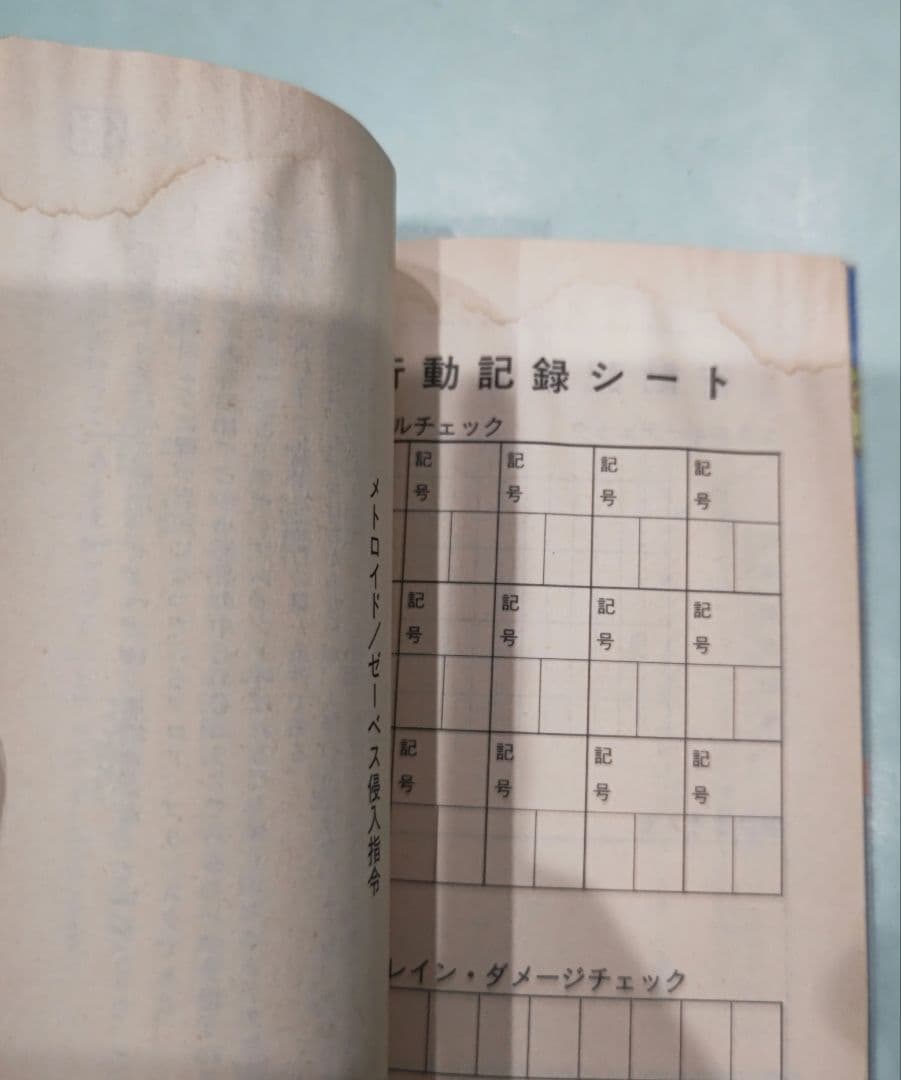 メトロイド／ゼーベス侵入指令
行動記録シート
ルチェック
記号 記号 記号 記号
記号 記号 記号 記号
記号 記号 記号 記号
レイン・ダメージチェック